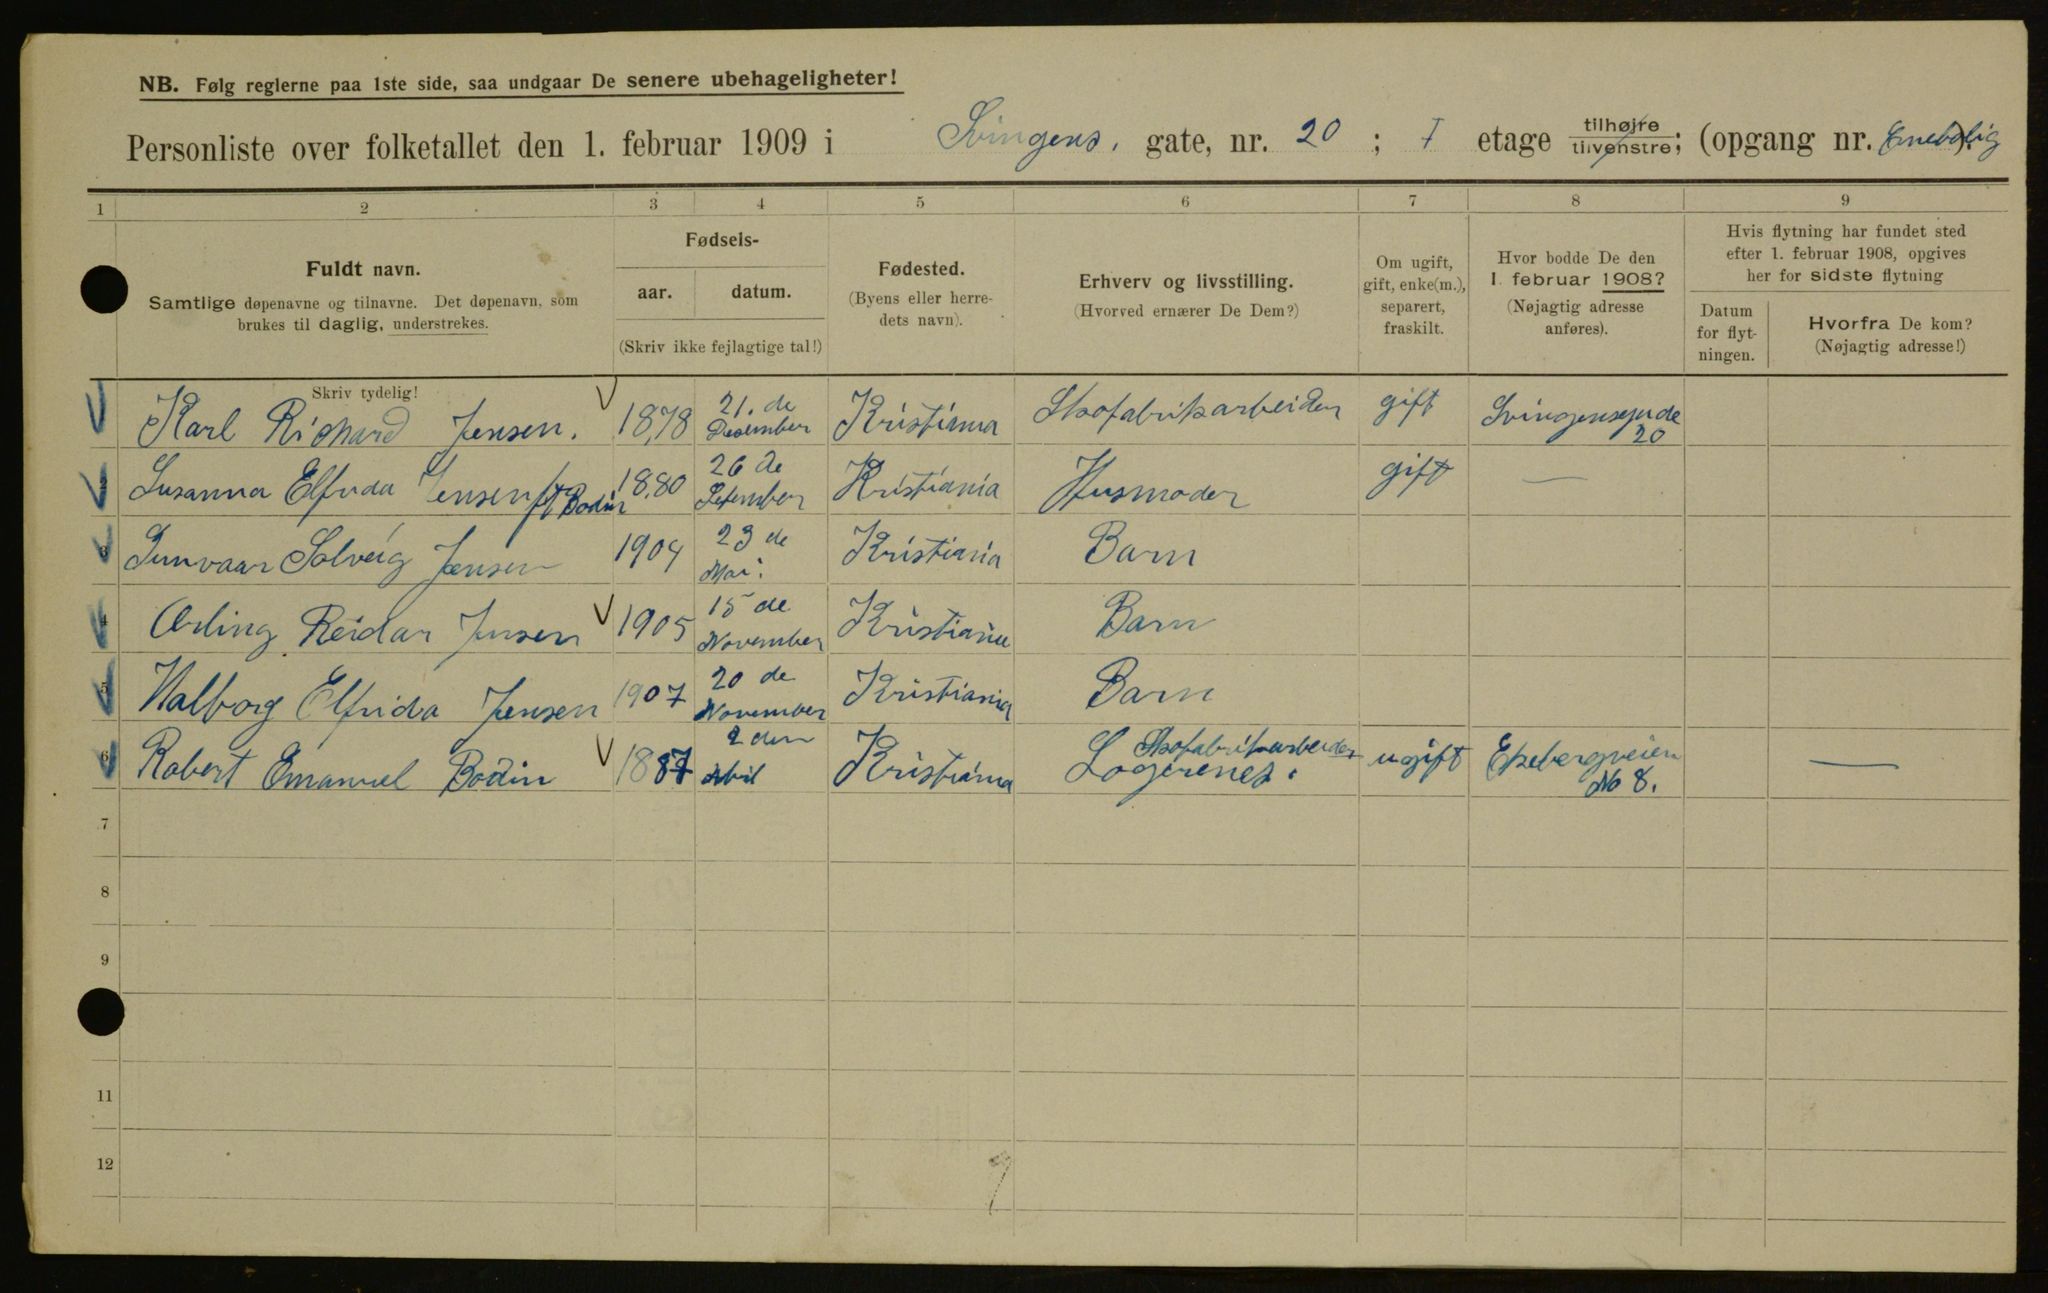 NB. Følg reglerne paa 1ste side, saa undgaar De senere ubehageligheter!
Personliste over folketallet den 1. februar 1909 i Svingens. gate, nr. 20 ; I etage tilhøjre tilvenstre; (opgang nr. Enebolig).
1 2 3 4 5 6 7 8 9
Fuldt navn.
Samtlige døpenavne og tilnavne. Det døpenavn, som
brukes til daglig, understrekes.
Skriv tydelig!
Fødsels-
aar. datum.
(Skriv ikke fejlagtige tal!)
Fødested.
(Byens eller herre-
dets navn).
Erhverv og livsstilling.
(Hvorved ernærer De Dem?)
Om ugift,
gift, enke(m.),
separert,
fraskilt.
Hvor bodde De den
1. februar 1908?
(Nøjagtig adresse
anføres).
Hvis flytning har fundet sted
efter 1. februar 1908, opgives
her for sidste flytning
Datum
for flyt-
ningen.
Hvorfra De kom?
(Nøjagtig adresse!)
Karl Richard Jensen. 1878 21. de Desember Kristiania Skofabrikarbeider gift Svingensgade 20
Susanna Elfrida Jensen ft Bodin 1880 26 de Setember Kristiania Husmoder gift —
3 Gunvaar Solveig Jensen 1904 23 de Mai. Kristiania Barn
4 Ærling Reidar Jensen 1905 15 de November Kristiania Barn
5 Walborg Elfrida Jensen 1907 20 de November Kristiania Barn
6 Robert Emanuel Bodin 1887 2 den Abril Kristiania Skofabrikarbeider Logerende. ugift Ekebergveien No 8. —
7
8
9
11
12